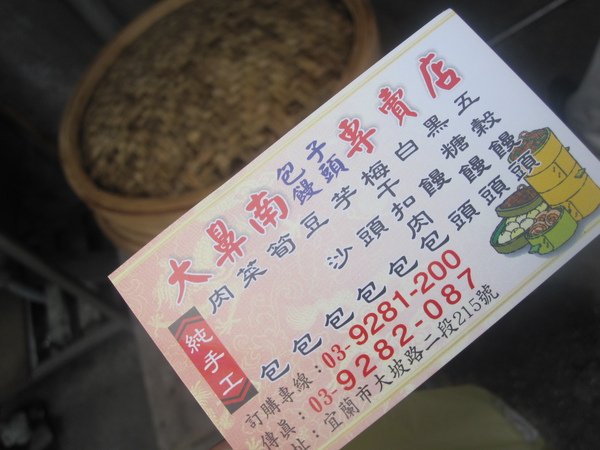 大鼻南包子饅頭專賣店
純手工
肉包
菜包
筍包
豆沙包
芋頭包
梅干扣肉包
白饅頭
黑糖饅頭
五穀饅頭
訂購專線：03-9281-200
傳真：03-9282-087
址：宜蘭市大坡路二段215號